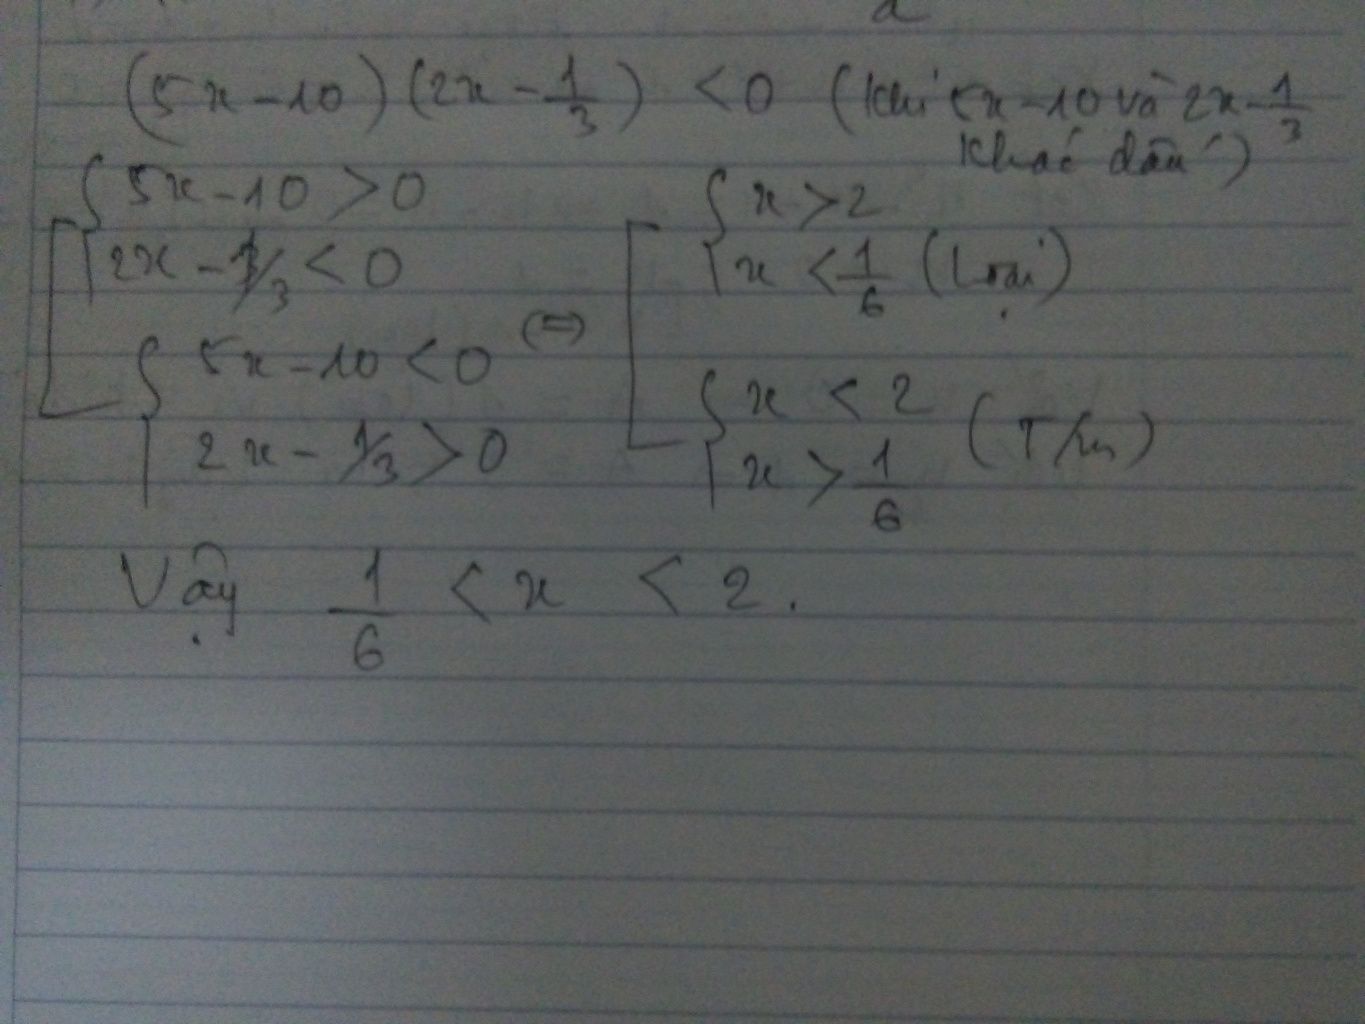 (5x-10)(2x-1/3) < 0 (khi 5x-10 và 2x-1/3
khác dấu)
5x-10 > 0
2x - 1/3 < 0
5x-10 < 0
2x - 1/3 > 0
<=>
x > 2
x < 1/6 (Loại)
x < 2
x > 1/6 (T/m)
Vậy 1/6 < x < 2.